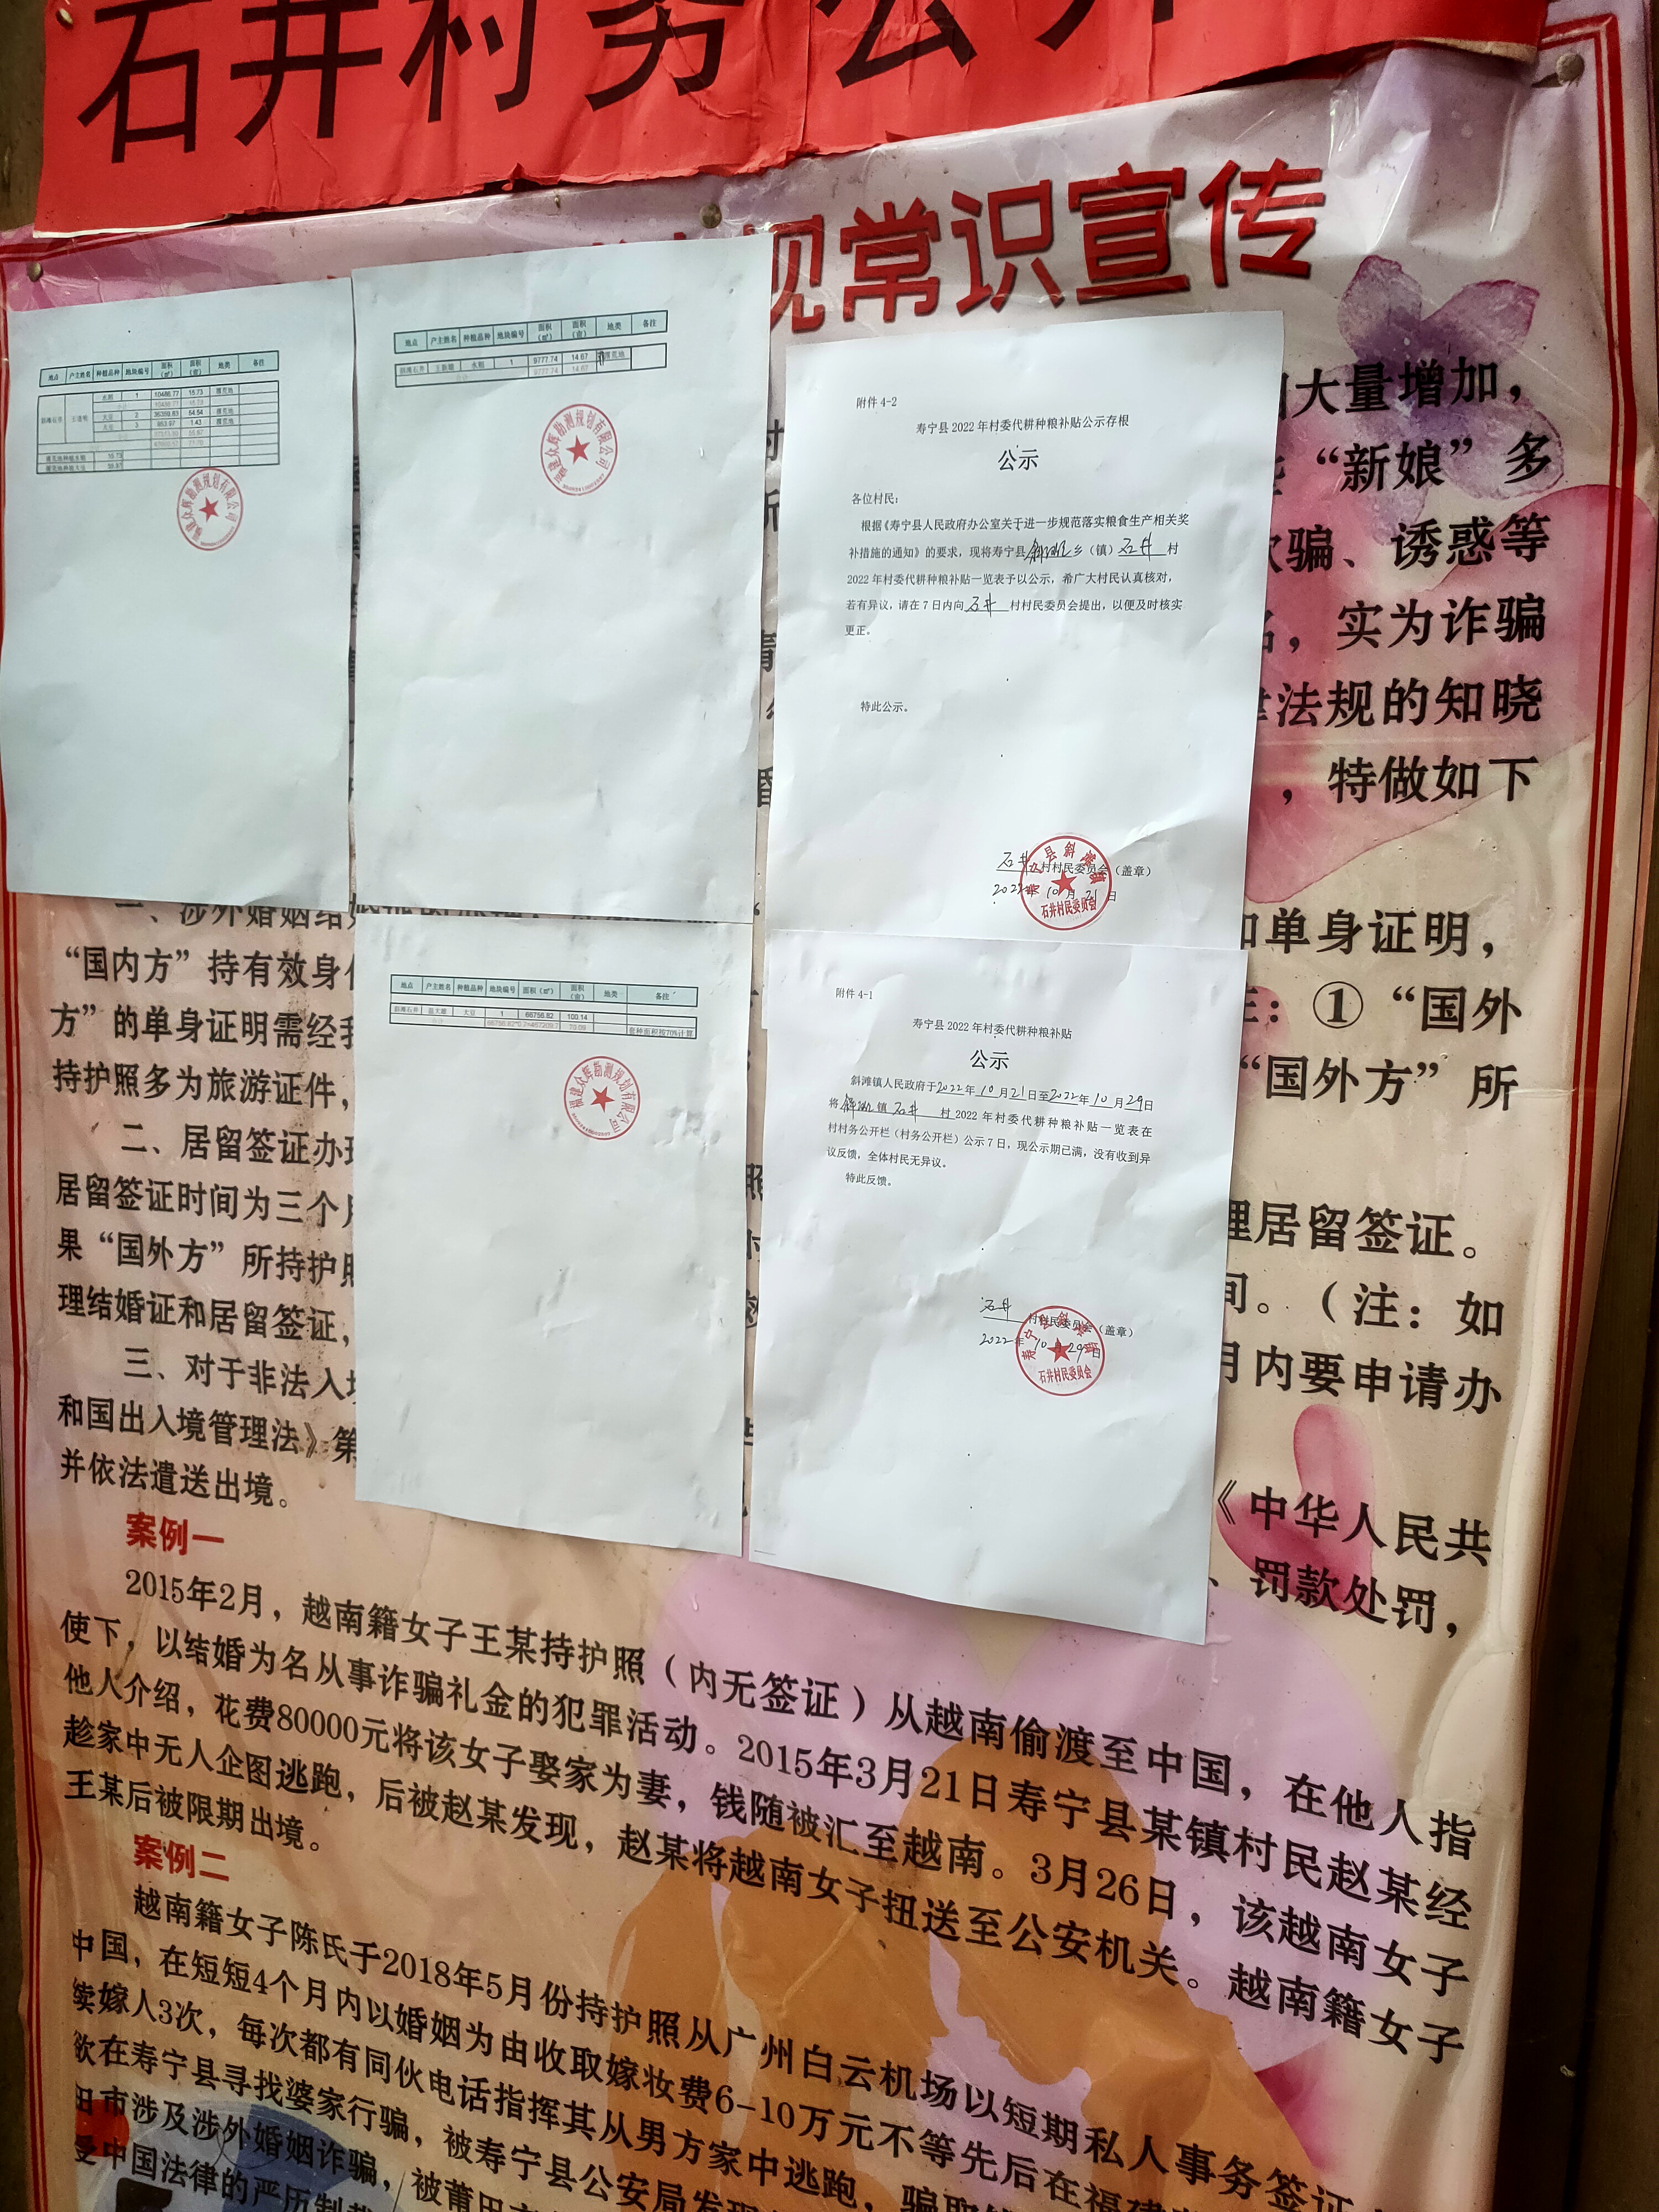 石井村务公开
规常识宣传
地点 户主姓名 种植品种 地块编号 面积（㎡） 面积（亩） 地类 备注
水稻 1 10486.77 15.73 撂荒地
大豆 2 36359.83 54.54 撂荒地
大豆 3 953.97 1.43 撂荒地
福建众辉勘测规划有限公司
地点 户主姓名 种植品种 地块编号 面积（㎡） 面积（亩） 地类 备注
斜滩石井 水稻 1 9777.74 14.67 撂荒地
9777.74 14.67
福建众辉勘测规划有限公司
附件 4-2
寿宁县 2022 年村委代耕种粮补贴公示存根
公示
各位村民：
根据《寿宁县人民政府办公室关于进一步规范落实粮食生产相关奖
补措施的通知》的要求，现将寿宁县斜滩乡（镇）石井村
2022 年村委代耕种粮补贴一览表予以公示，希广大村民认真核对，
若有异议，请在 7 日内向石井村村民委员会提出，以便及时核实
更正。
特此公示。
石井村村民委员会（盖章）
2022年10月21日
寿宁县斜滩镇
石井村民委员会
地点 户主姓名 种植品种 地块编号 面积（㎡） 面积（亩） 地类 备注
斜滩石井 大豆 1 66756.82 100.14
70.09 套种面积按70%计算
福建众辉勘测规划有限公司
附件 4-1
寿宁县 2022 年村委代耕种粮补贴
公示
斜滩镇人民政府于2022年10月21日至2022年10月29日
将斜滩镇石井村 2022 年村委代耕种粮补贴一览表在
村村务公开栏（村务公开栏）公示 7 日，现公示期已满，没有收到异
议反馈，全体村民无异议。
特此反馈。
石井村村民委员会（盖章）
2022年10月29日
寿宁县斜滩镇
石井村民委员会
大量增加，
“新娘”多
骗、诱惑等
，实为诈骗
法规的知晓
，特做如下
一、涉外婚姻结
单身证明，
“国内方”持有效身
：①“国外
方”的单身证明需经我
“国外方”所
持护照多为旅游证件，
二、居留签证办理
理居留签证。
居留签证时间为三个月
间。（注：如
果“国外方”所持护照
月内要申请办
理结婚证和居留签证，
三、对于非法入境
《中华人民共
和国出入境管理法》第
、罚款处罚，
并依法遣送出境。
案例一
2015年2月，越南籍女子王某持护照（内无签证）从越南偷渡至中国，在他人指
使下，以结婚为名从事诈骗礼金的犯罪活动。2015年3月21日寿宁县某镇村民赵某经
他人介绍，花费80000元将该女子娶家为妻，钱随被汇至越南。3月26日，该越南女子
趁家中无人企图逃跑，后被赵某发现，赵某将越南女子扭送至公安机关。越南籍女子
王某后被限期出境。
案例二
越南籍女子陈氏于2018年5月份持护照从广州白云机场以短期私人事务签证
中国，在短短4个月内以婚姻为由收取嫁妆费6-10万元不等先后在福建
续嫁人3次，每次都有同伙电话指挥其从男方家中逃跑，骗取
欲在寿宁县寻找婆家行骗，被寿宁县公安局发现
田市涉及涉外婚姻诈骗，被莆田
受中国法律的严厉制裁